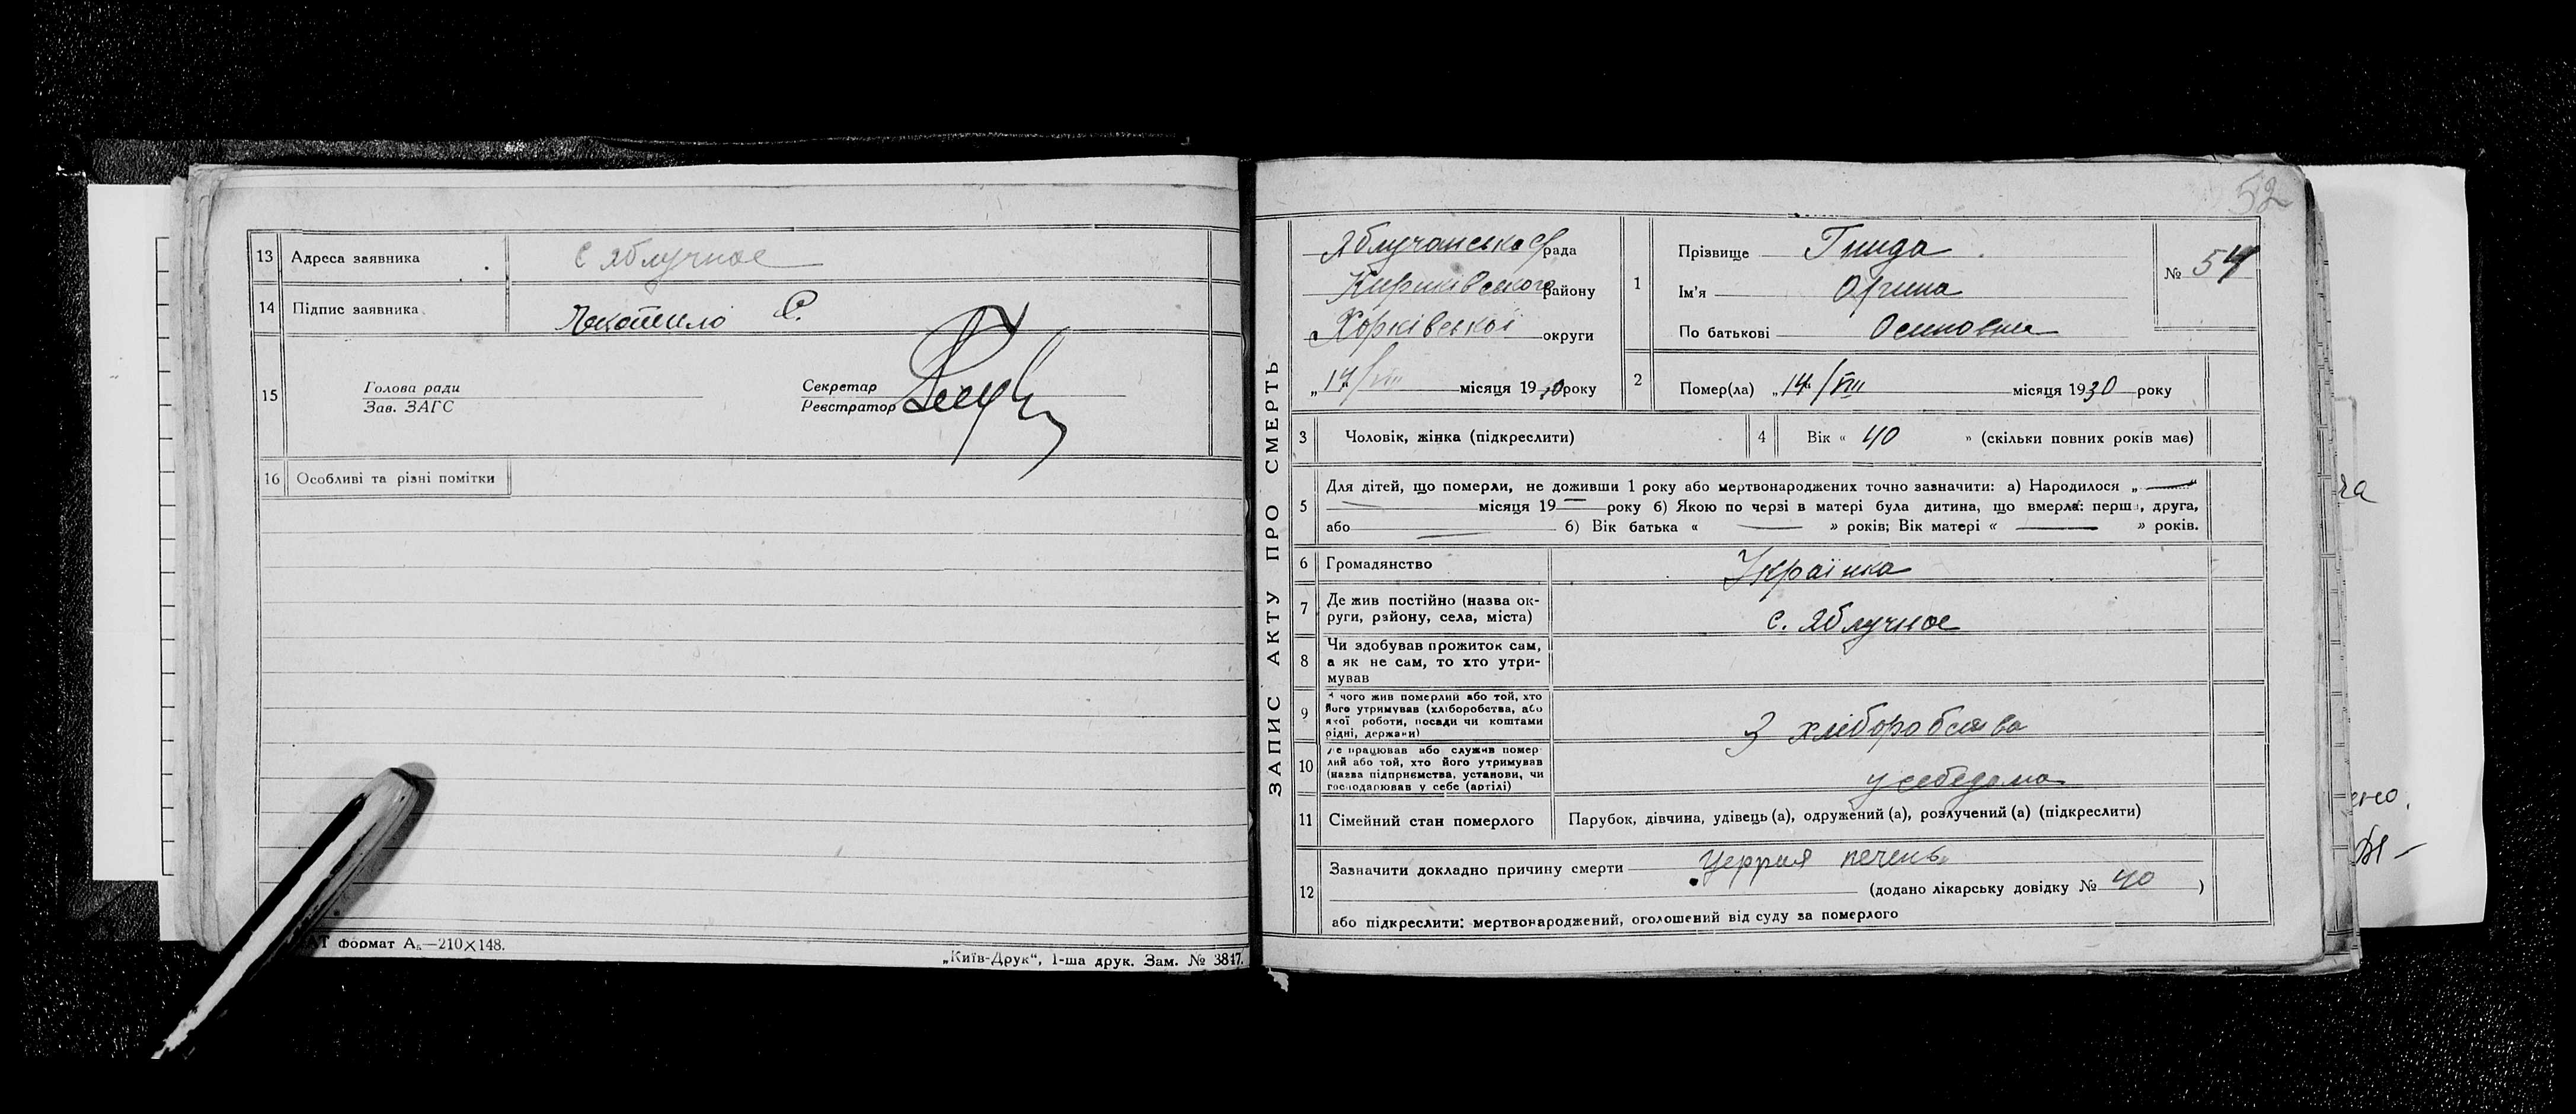 13 Адреса заявника с Яблучное
14 Підпис заявника С.
15 Голова ради Секретар
Зав. ЗАГС Реєстратор
16 Особливі та різні помітки
формат А₅—210×148.
„Київ-Друк“, 1-ша друк. Зам. № 3847.
52
ЗАПИС АКТУ ПРО СМЕРТЬ
Яблучанська с/рада
району
Харківської округи
„17/VIII місяця 1930 року
1 Прізвище Гнида
Ім'я Орина
По батькові Осиповна
№ 54
2 Помер(ла) „14/VIII місяця 1930 року
3 Чоловік, жінка (підкреслити)
4 Вік « 40 » (скільки повних років має)
5 Для дітей, що померли, не доживши 1 року або мертвонароджених точно зазначити: а) Народилося „ — “
— місяця 19 — року б) Якою по черзі в матері була дитина, що вмерла: перша, друга,
або — б) Вік батька « — » років; Вік матері « — » років.
6 Громадянство Українка
7 Де жив постійно (назва ок-
руги, району, села, міста) с. Яблучное
8 Чи здобував прожиток сам,
а як не сам, то хто утри-
мував
9 З чого жив померлий або той, хто
його утримував (хліборобства, або
якої роботи, посади чи коштами
рідні, держави) З хліборобства
10 Де працював або служив помер-
лий або той, хто його утримував
(назва підприємства, установи, чи
господарював у себе (артілі) у себе дома
11 Сімейний стан померлого Парубок, дівчина, удівець (а), одружений (а), розлучений (а) (підкреслити)
12 Зазначити докладно причину смерти печень
(додано лікарську довідку № 40 )
або підкреслити: мертвонароджений, оголошений від суду за померлого